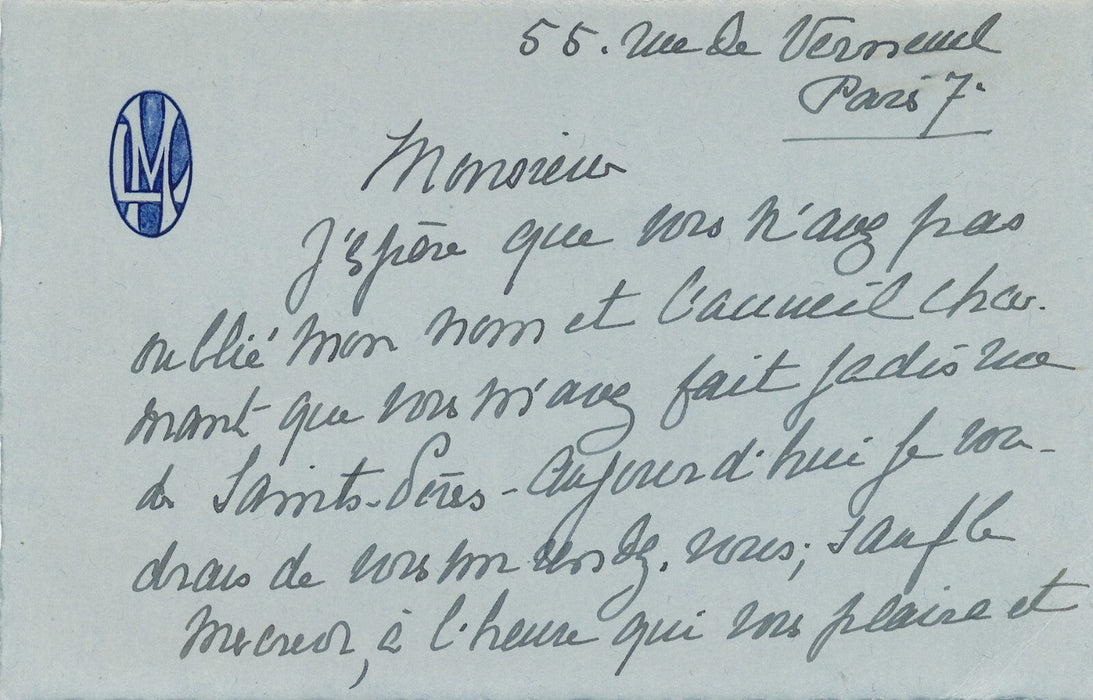 55. rue de Verneuil
Paris 7.
LM
Monsieur
J'espère que vous n'avez pas
oublié mon nom et l'accueil char-
mant que vous m'avez fait jadis rue
des Saints-Pères - Aujourd'hui je vou-
drais de vous un rendez-vous; sauf le
Mercredi, à l'heure qui vous plaira et